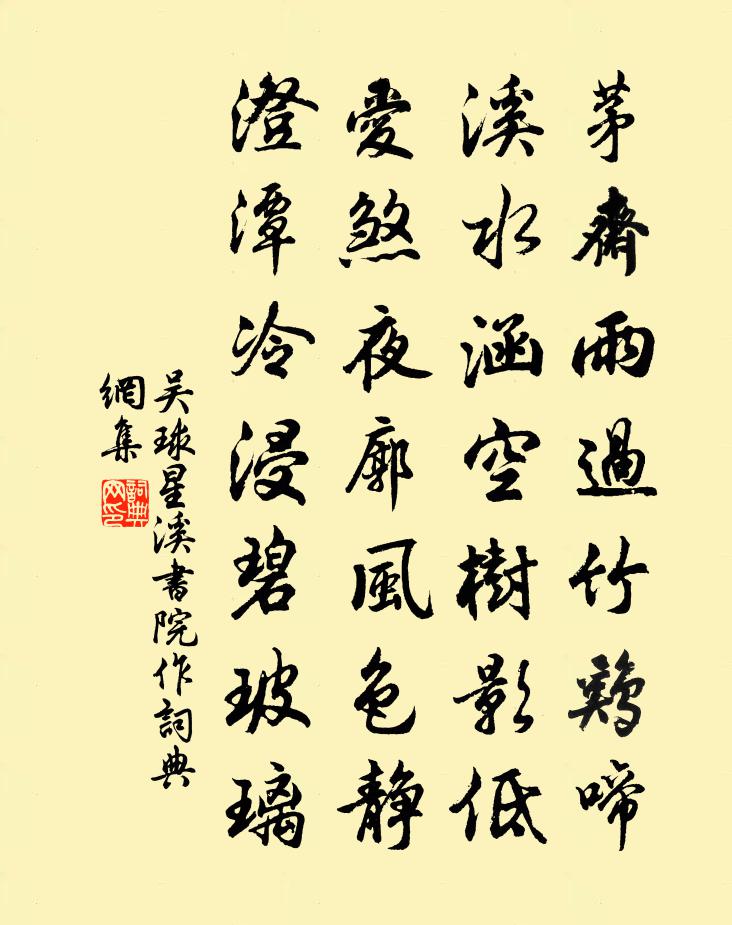 茅齋雨過竹鷄啼
溪水涵空樹影低
愛煞夜廊風色靜
澄潭冷浸碧玻璃
吴球星溪書院作詞典
網集
詞典
网印